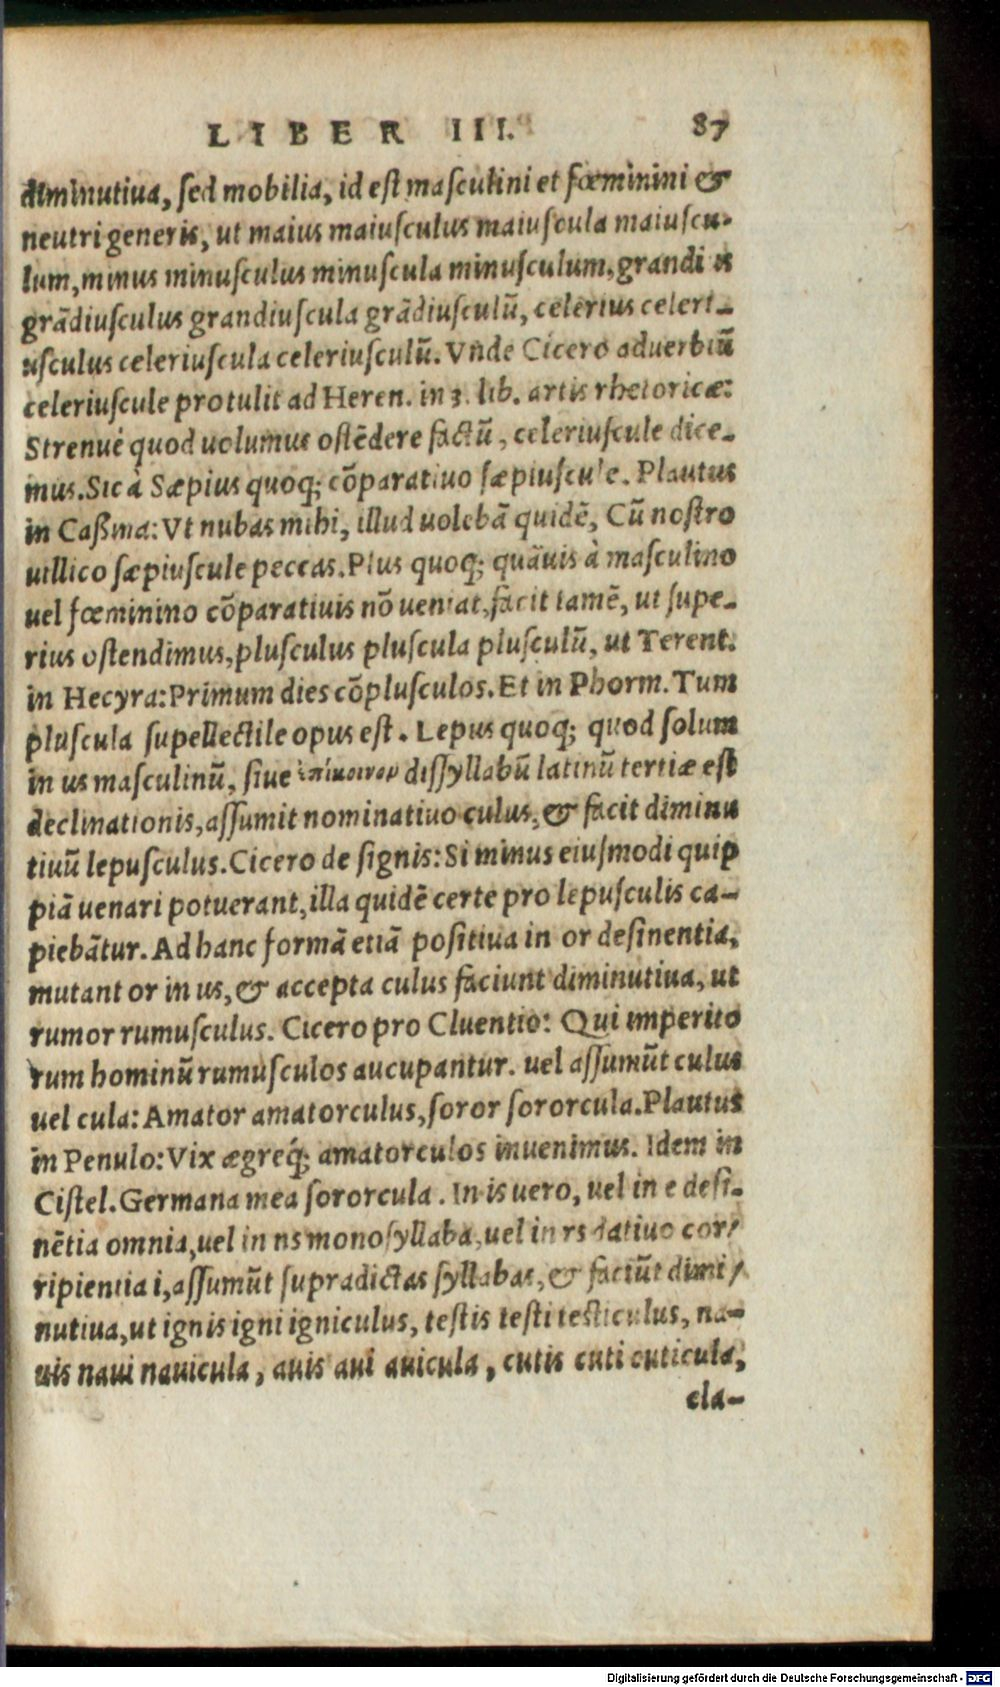 LIBER III. 87
diminutiua, sed mobilia, id est masculini et fœminini &
neutri generis, ut maius maiusculus maiuscula maiuscu-
lum, minus minusculus minuscula minusculum, grandius
grādiusculus grandiuscula grādiusculū, celerius celeri-
usculus celeriuscula celeriusculū. Vnde Cicero aduerbiū
celeriuscule protulit ad Heren. in 3. lib. artis rhetoricæ:
Strenuè quod uolumus ostēdere factū, celeriuscule dice-
mus. Sic à Sæpius quoq; cōparatiuo sæpiuscule. Plautus
in Caßina: Vt nubas mihi, illud uolebā quidē, Cū nostro
uillico sæpiuscule peccas. Plus quoq; quāuis à masculino
uel fœminino cōparatiuis nō ueniat, facit tamē, ut supe-
rius ostendimus, plusculus pluscula plusculū, ut Terent.
in Hecyra: Primum dies cōplusculos. Et in Phorm. Tum
pluscula supellectile opus est. Lepus quoq; quod solum
in us masculinū, siue ἐπίκοινον dissyllabū latinū tertiæ est
declinationis, assumit nominatiuo culus, & facit diminu
tiuū lepusculus. Cicero de signis: Si minus eiusmodi quip
piā uenari potuerant, illa quidē certe pro lepusculis ca-
piebātur. Ad hanc formā etiā positiua in or desinentia,
mutant or in us, & accepta culus faciunt diminutiua, ut
rumor rumusculus. Cicero pro Cluentio: Qui imperito
rum hominū rumusculos aucupantur. uel assumūt culus
uel cula: Amator amatorculus, soror sororcula. Plautus
in Penulo: Vix ægréq; amatorculos inuenimus. Idem in
Cistel. Germana mea sororcula. In is uero, uel in e desi-
nētia omnia, uel in ns monosyllaba, uel in rs datiuo cor/
ripientia i, assumūt supradictas syllabas, & faciūt dimi/
nutiua, ut ignis igni igniculus, testis testi testiculus, na-
uis naui nauicula, auis aui auicula, cutis cuti cuticula,
cla-
Digitalisierung gefördert durch die Deutsche Forschungsgemeinschaft - DFG